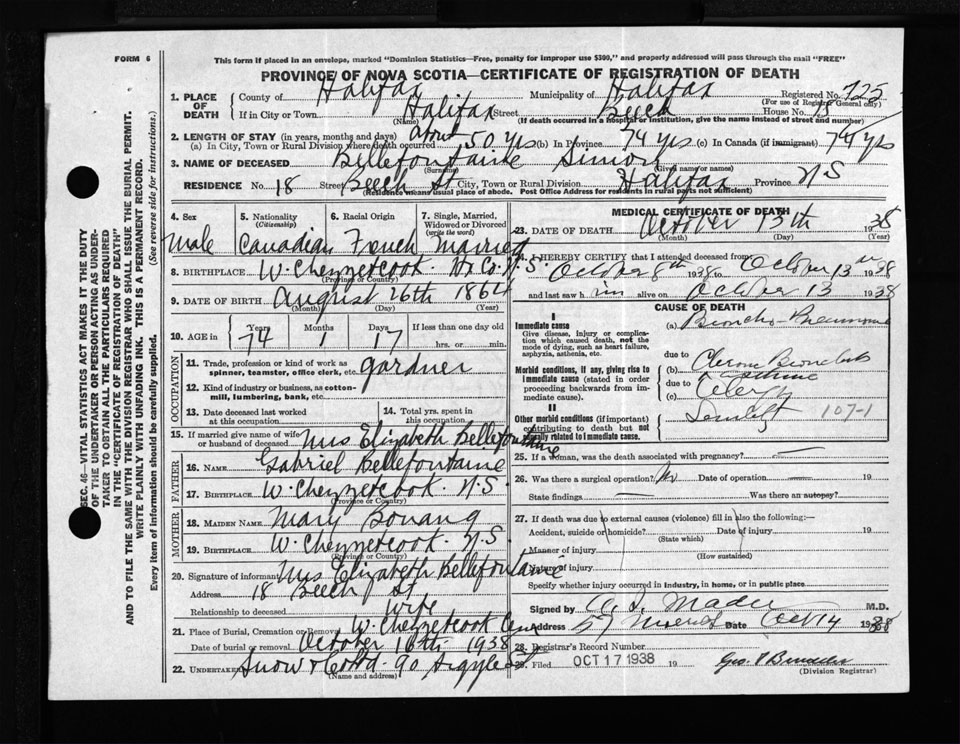 FORM 6
This form if placed in an envelope, marked "Dominion Statistics—Free, penalty for improper use $300," and properly addressed will pass through the mail "FREE"
PROVINCE OF NOVA SCOTIA—CERTIFICATE OF REGISTRATION OF DEATH
SEC. 46—VITAL STATISTICS ACT MAKES IT THE DUTY
OF THE UNDERTAKER OR PERSON ACTING AS UNDER-
TAKER TO OBTAIN ALL THE PARTICULARS REQUIRED
IN THE "CERTIFICATE OF REGISTRATION OF DEATH"
AND TO FILE THE SAME WITH THE DIVISION REGISTRAR WHO SHALL ISSUE THE BURIAL PERMIT.
WRITE PLAINLY WITH UNFADING INK. THIS IS A PERMANENT RECORD.
Every item of information should be carefully supplied. (See reverse side for instructions.)
1. PLACE OF DEATH County of Halifax Municipality of Halifax Registered No. 725
(For use of Registrar General only)
If in City or Town Halifax Street Beech House No. 18
(Name) (If death occurred in a hospital or institution, give the name instead of street and number)
2. LENGTH OF STAY (in years, months and days)
(a) In City, Town or Rural Division where death occurred about 50 yrs (b) In Province 74 yrs (c) In Canada (if immigrant) 74 yrs
3. NAME OF DECEASED Bellefontaine Simon
(Surname) (Given name or names)
RESIDENCE No. 18 Street Beech St City, Town or Rural Division Halifax Province N S
(Residence means usual place of abode. Post Office Address for residents in rural parts not sufficient)
4. Sex
Male
5. Nationality
(Citizenship)
Canadian
6. Racial Origin
French
7. Single, Married,
Widowed or Divorced
(write the word)
Married
8. BIRTHPLACE W. Chezzetcook. Hx Co. N.S.
(Province or Country)
9. DATE OF BIRTH August 26th 1864
(Month) (Day) (Year)
10. AGE in Years Months Days If less than one day old
74 1 17 hrs. or min.
OCCUPATION
11. Trade, profession or kind of work as
spinner, teamster, office clerk, etc. gardner
12. Kind of industry or business, as cotton-
mill, lumbering, bank, etc.
13. Date deceased last worked
at this occupation
14. Total yrs. spent in
this occupation
15. If married give name of wife
or husband of deceased Mrs Elizabeth Bellefontaine
FATHER
16. NAME Gabriel Bellefontaine
17. BIRTHPLACE W. Chezzetcook. N.S.
(Province or Country)
MOTHER
18. MAIDEN NAME Mary Bonang
19. BIRTHPLACE W. Chezzetcook. N.S.
(Province or Country)
20. Signature of informant Mrs Elizabeth Bellefontaine
Address 18 Beech St
Relationship to deceased Wife
21. Place of Burial, Cremation or Removal W. Chezzetcook Cem
Date of burial or removal October 16th 1938
22. Undertaker Snow & Co Ltd. 90 Argyle St
(Name and address)
MEDICAL CERTIFICATE OF DEATH
23. DATE OF DEATH October 13th 1938
(Month) (Day) (Year)
24. I HEREBY CERTIFY that I attended deceased from
October 8th 1938 to October 13th 1938
and last saw him alive on October 13 1938
CAUSE OF DEATH
I
Immediate cause
Give disease, injury or complica-
tion which caused death, not the
mode of dying, such as heart failure,
asphyxia, asthenia, etc.
(a) Broncho-Pneumonia
due to
Morbid conditions, if any, giving rise to
immediate cause (stated in order
proceeding backwards from im-
mediate cause).
(b) Chronic Bronchitis
due to
(c)
II
Other morbid conditions (if important)
contributing to death but not
causally related to immediate cause.
Senility 107-1
25. If a woman, was the death associated with pregnancy? —
26. Was there a surgical operation? No Date of operation — 19
State findings — Was there an autopsy?
27. If death was due to external causes (violence) fill in also the following:—
Accident, suicide or homicide? Date of injury 19
(State which)
Manner of injury
(How sustained)
Nature of injury
Specify whether injury occurred in industry, in home, or in public place
Signed by Mader M.D.
Address 57 Date Oct 14 1938
28. Registrar's Record Number
29. Filed OCT 17 1938 19 Geo. P
(Division Registrar)